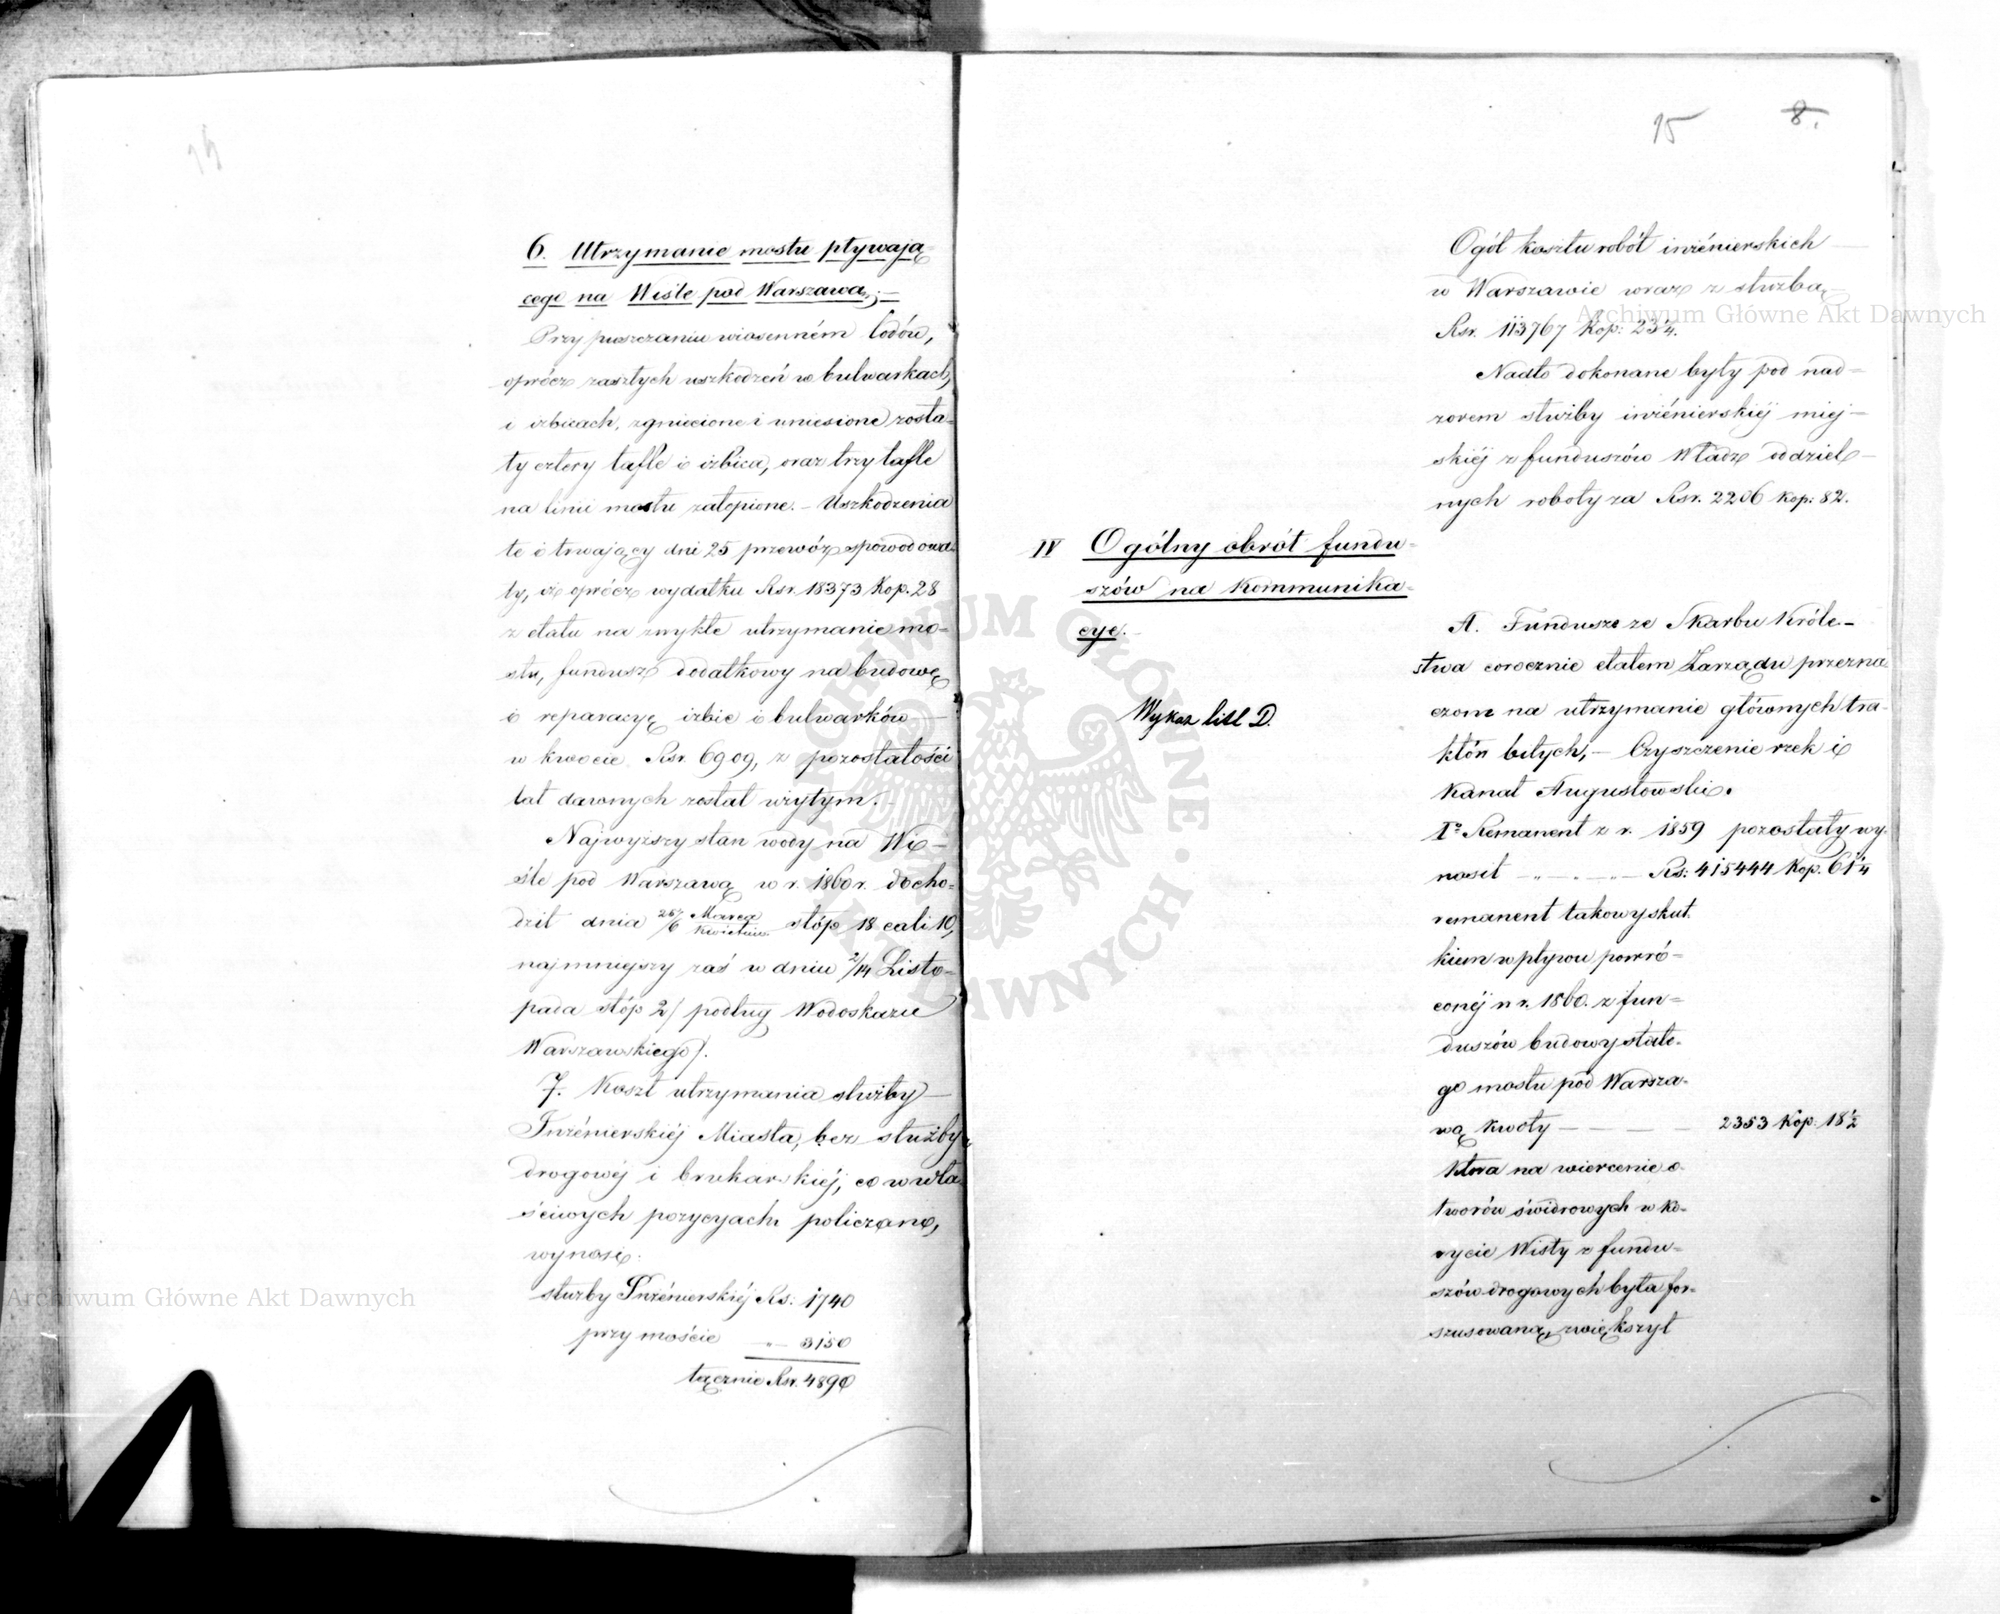 14
6. Utrzymanie mostu pływają-
cego na Wiśle pod Warszawą;—
Przy puszczaniu wiosenném lodów,
oprócz zaszłych uszkodzeń w bulwarkach,
i izbicach, zgniecione i uniesione zosta-
ły cztery tafle i izbica, oraz trzy tafle
na linii mostu zatopione. – Uszkodzenia
te i trwający dni 25 przewóz spowodowa-
ły, iż oprócz wydatku Rsr. 18373 Kop. 28
z etatu na zwykłe utrzymanie mo-
stu, fundusz dodatkowy na budowę
i reparacyę izbic i bulwarków
w kwocie Rsr. 6909, z pozostałości
lat dawnych został użytym.–
Najwyższy stan wody na Wi-
śle pod Warszawą w r. 1860 r. docho-
dził dnia 25/6 Marca/Kwietnia stóp 18 cali 10,
najmniejszy zaś w dniu 2/14 Listo-
pada stóp 2 / podług Wodoskazu
Warszawskiego/.
7. Koszt utrzymania służby
Inżénierskiéj Miasta, bez służby
drogowéj i brukarskiéj, co w wła-
ściwych pozycyach policzono,
wynosi:
służby Inżénierskiéj Rs: 1740
przy moście „– 3150
łącznie Rsr. 4890
15 8.
Ogół kosztu robót inżénierskich
w Warszawie wraz z służbą
Rsr. 113767 Kop: 23¼.
Nadto dokonane były pod nad-
zorem służby inżénierskiéj miej-
skiéj z funduszów Władz oddziel-
nych roboty za Rsr. 2206 Kop: 82.
IV Ogólny obrót fundu-
szów na Kommunika-
cye.
Wykaz litt D.
A. Fundusze ze Skarbu Króle-
stwa corocznie etatem Zarządu przezna-
czone na utrzymanie głównych tra-
któw bitych,– Czyszczenie rzek i
Kanał Augustowski.
1º Remanent z r. 1859 pozostały wy-
nosił – „ – „ – Rs: 415444 Kop. 61¼
remanent takowy skut-
kiem wpływu powró-
conéj w r. 1860. z fun-
duszów budowy stałe-
go mostu pod Warsza-
wą kwoty – – – – 2353 Kop. 18½
która na wiercenie o-
tworów świdrowych w ko-
rycie Wisły z fundu-
szów drogowych była for-
szusowaną, zwiększył
Archiwum Główne Akt Dawnych
Archiwum Główne Akt Dawnych
ARCHIWUM GŁÓWNE AKT DAWNYCH